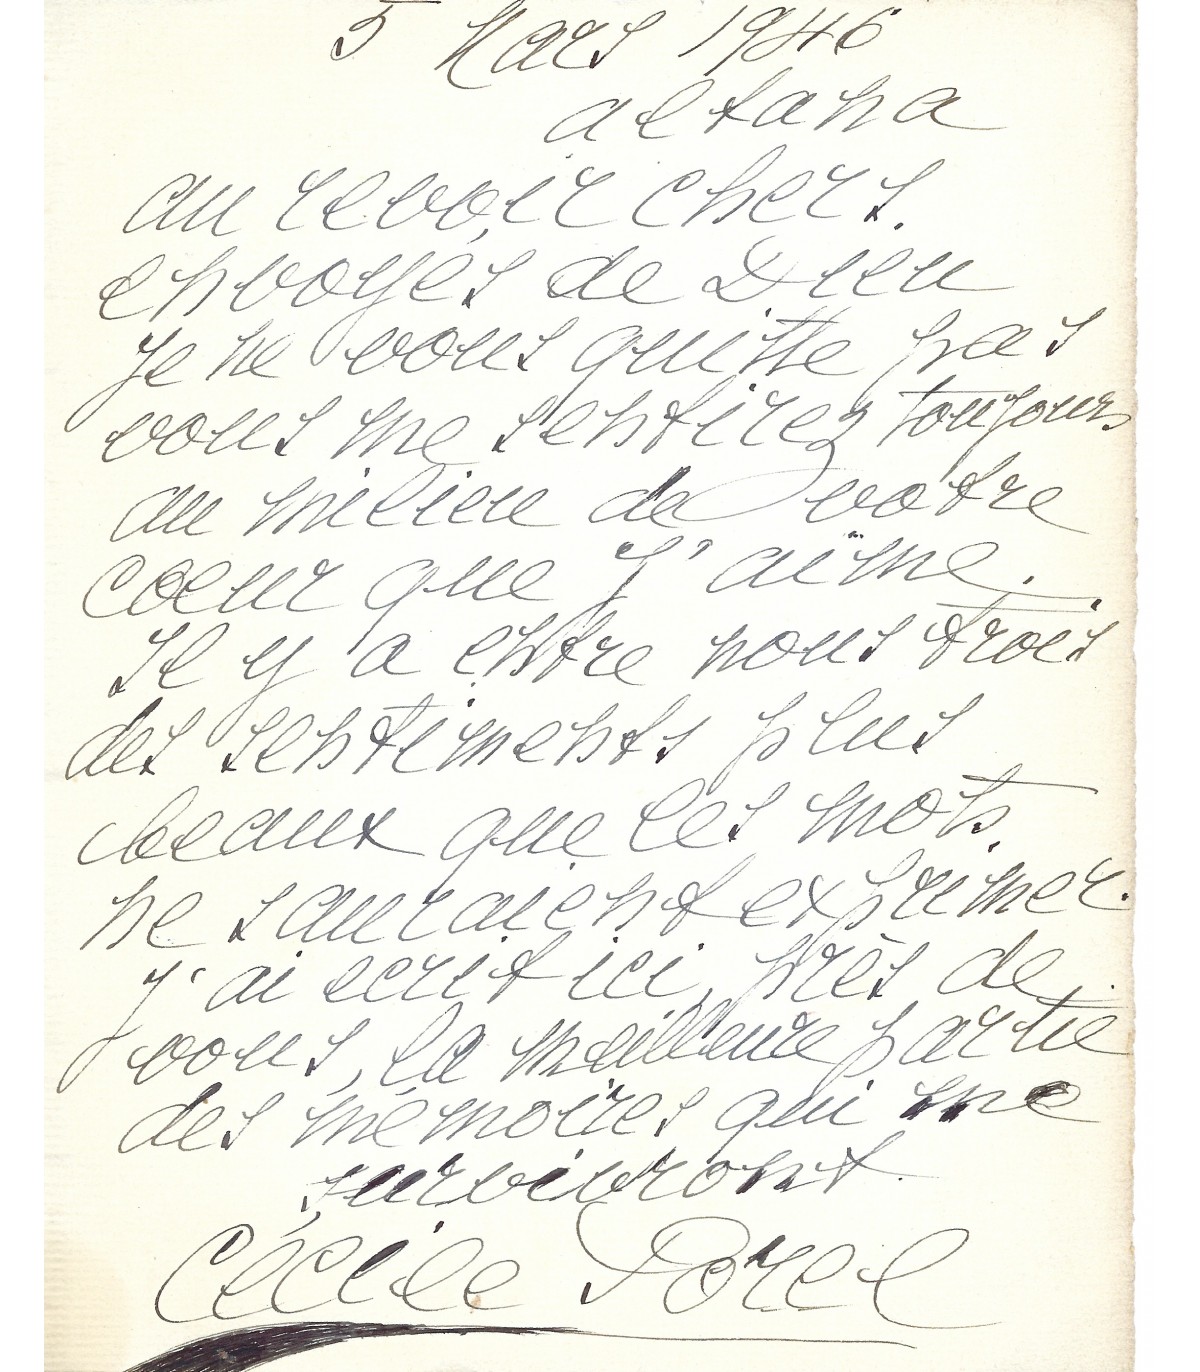 5 Mars 1946
altana
au revoir chers.
envoyés de Dieu
je ne vous quitte pas
vous me sentirez toujours
au milieu de votre
coeur que j'aime.
Il y a entre nous trois
des sentiments plus
beaux que les mots
ne sauraient exprimer.
j'ai ecrit ici, près de
vous, la meilleure partie
des mémoires qui me
survivront.
Cécile Sorel